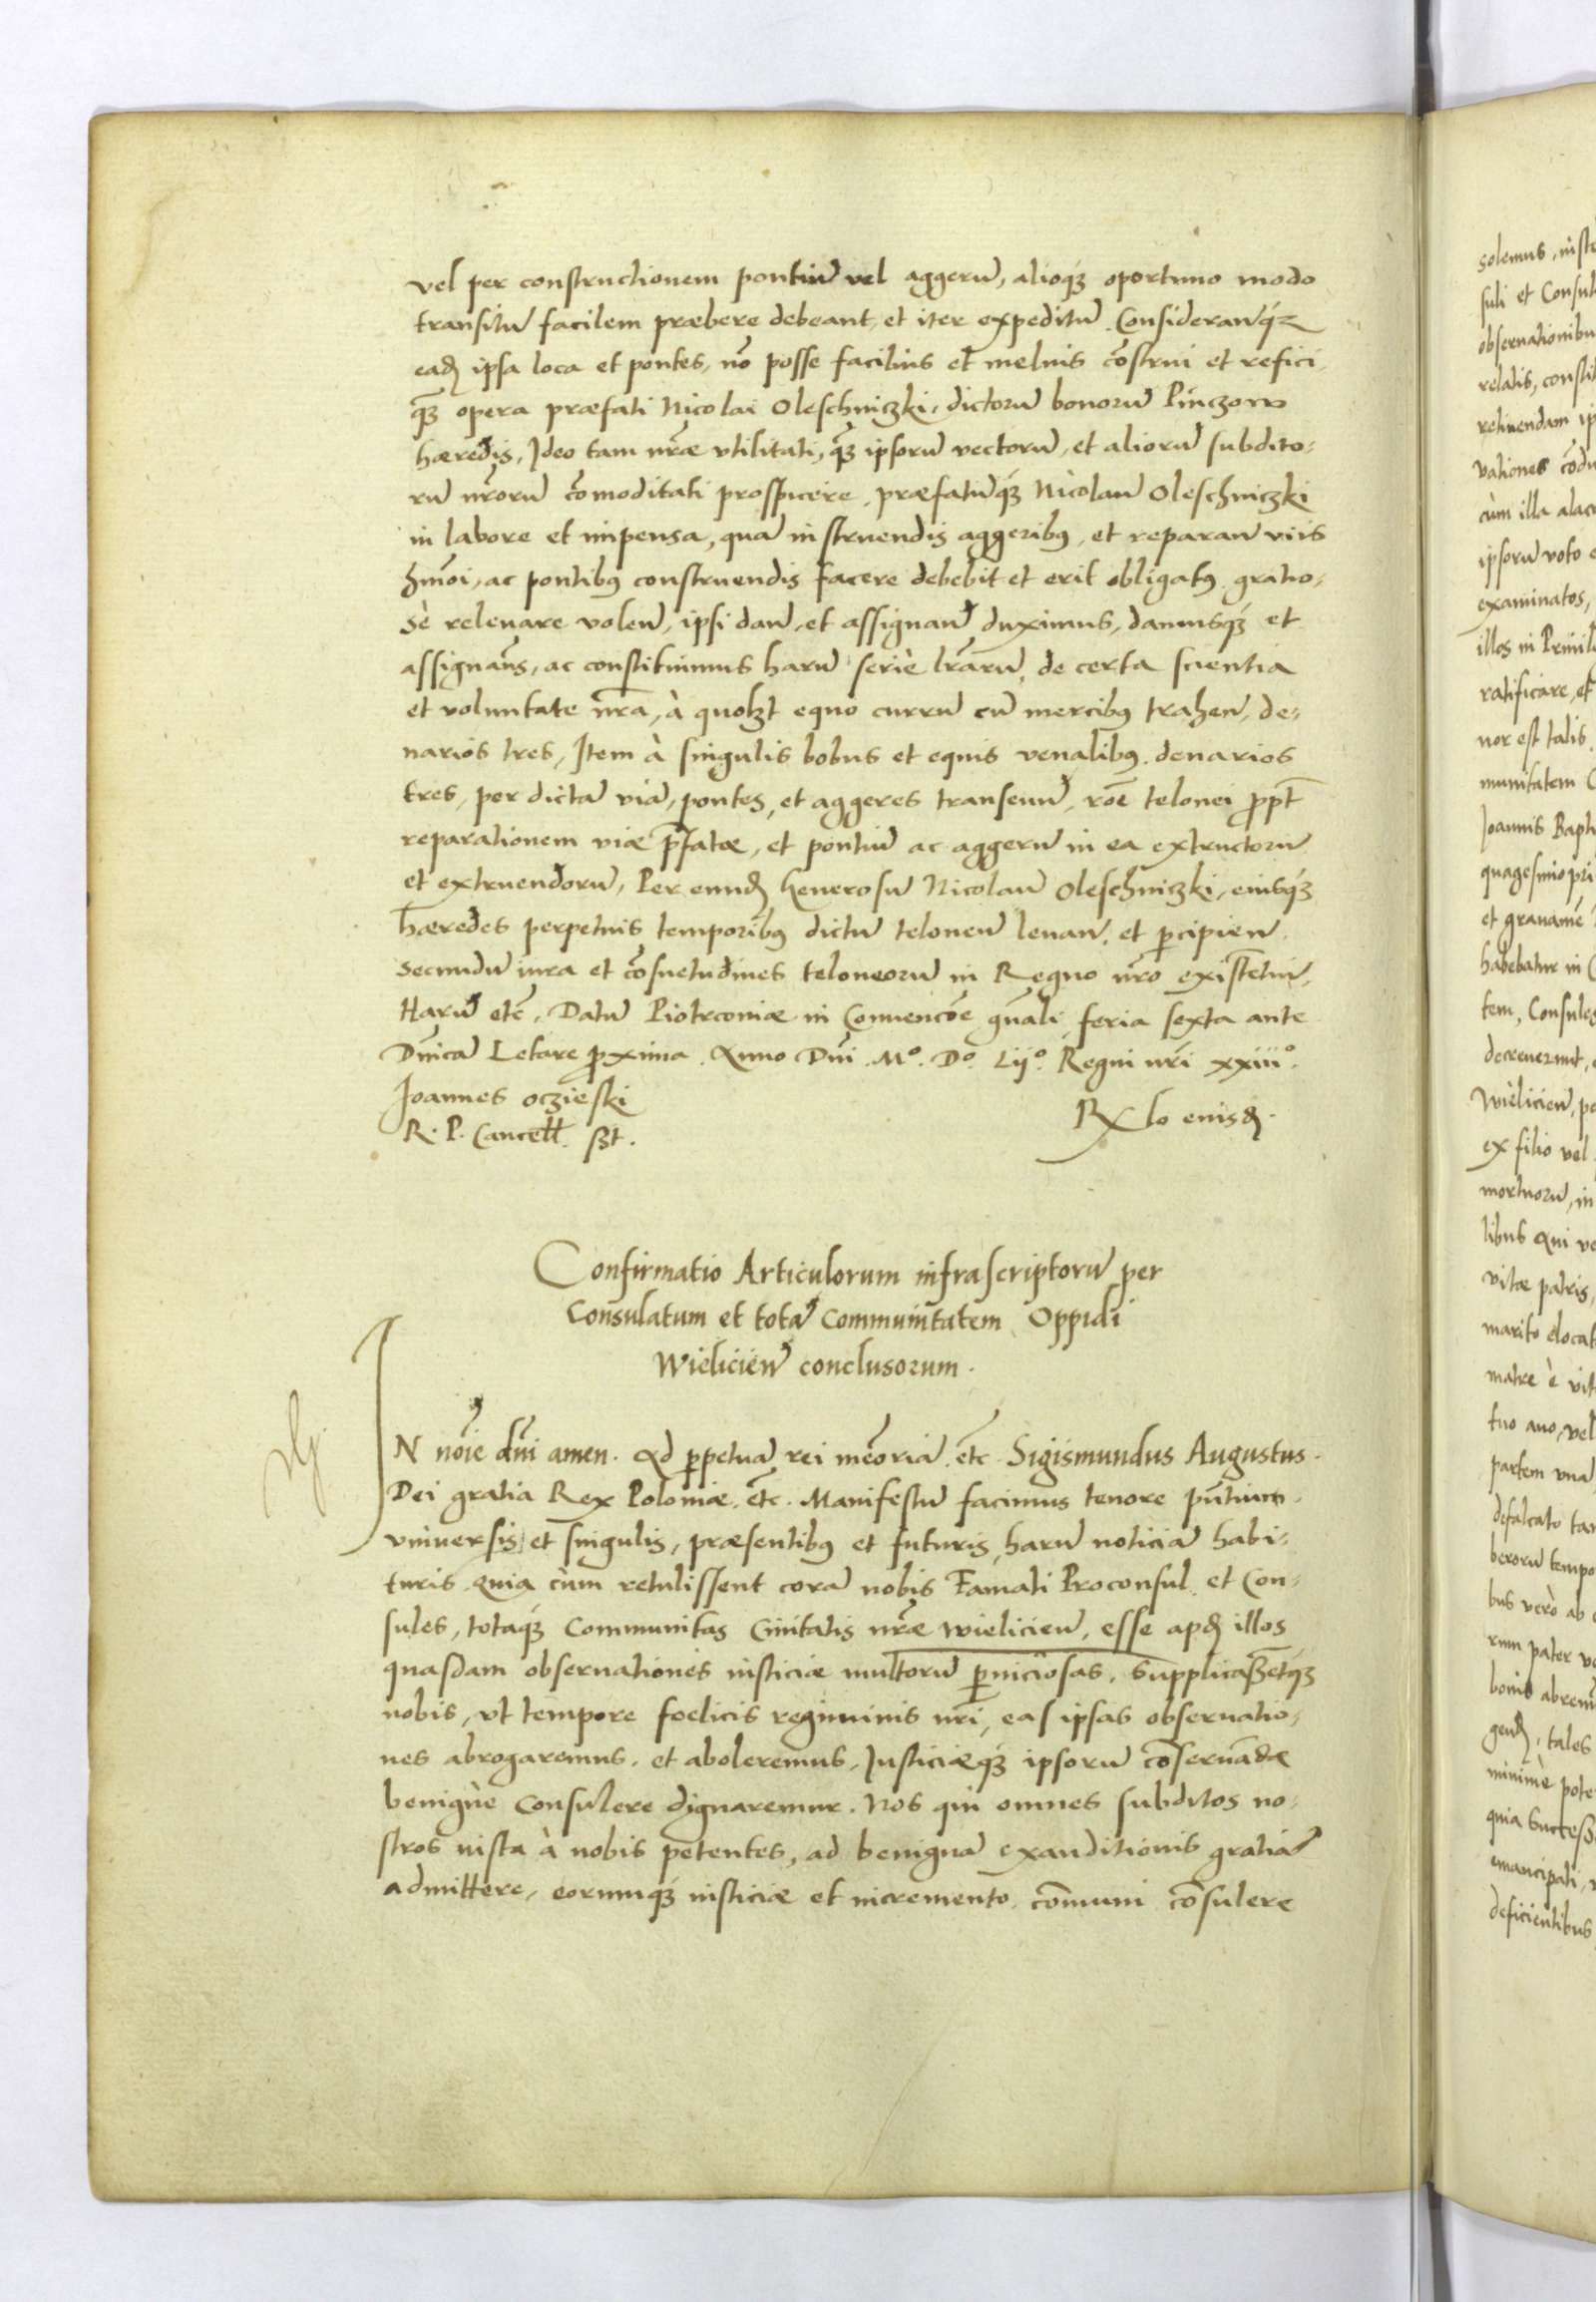 vel per constructionem pontiũ vel aggerũ, alioq́3 oportuno modo
transitũ facilem præbere debeant, et iter expeditũ. Considerañq́3
ead̃ ipsa loca et pontes, nõ posse facilius et melius cõstrui et refici,
q̃3 opera præfati Nicolai Oleschniczki, dictorũ bonorũ Pinczow
hæredis, Ideo tam nr̃æ vtilitati, q̃3 ipsorũ vectorũ, et aliorũ subdito-
rũ nr̃orũ cõmoditati prospicere, præfatũq́3 Nicolaũ Oleschniczki
in labore et impensa, quã in struendis aggeribꝰ, et reparañ viis
hm̃oi, ac pontibꝰ construendis facere debebit et erit obligatꝰ gratio-
sè releuare voleñ, ipsi dañ, et assignañ duximus, damusq́3 et
assignam̃s, ac constituimus harũ seriè lr̃arũ, de certa scientia
et voluntate nr̃a, à quolzt equo currũ cũ mercibꝰ traheñ, de-
narios tres, Item à singulis bobus et equis venalibꝰ denarios
tres, per dictã viã, pontes, et aggeres transeuñ, rõe telonei ꝓpt̃
reparationem viæ p̃fatæ, et pontiũ ac aggerũ in ea extructorũ
et extruendorũ, Per eund̃ Generosũ Nicolaũ Oleschniczki, eiusq́3
hæredes perpetuis temporibꝰ dictũ teloneũ leuañ, et ꝑcipieñ
Secundũ iura et cõsuetudines teloneorũ in Regno nr̃o existeñ.
Harũ etc̃. Datũ Piotrcouiæ in Conuencõe gñali, feria sexta ante
Dñicã Letare ꝓxima Anno Dñi .M°. D°. Lij°. Regni nr̃i xxiii°.
Joannes oczieski
R. P. Cancell. sst.
Rx lo eiusd̃.
Confirmatio Articulorum infrascriptorũ per
Consulatum et totã Communitatem Oppidi
Wielicieñ conclusorum.
IN nõie dñi amen. Ad ꝑpetuã rei mẽoriã. etc̃ Sigismundus Augustus.
Dei gratia Rex Poloniæ. etc̃. Manifestũ facimus tenore pñtium,
vniuersis et singulis, præsentibꝰ et futuris, harũ noticiã habi-
turis. Quia cùm retulissent corã nobis Famati Proconsul et Con-
sules, totaq́3 Communitas Ciuitatis nr̃æ Wielicieñ, esse apd̃ illos
quasdam obseruationes iusticiæ multorũ ꝑniciosas, supplicassetq́3
nobis, vt tempore foelicis regiminis nr̃i, eas ipsas obseruatio-
nes abrogaremus, et aboleremus, Justiciæq́3 ipsorũ cõseruãdæ
benignè Consulere dignaremur. Nos qui omnes subditos no-
stros iusta à nobis petentes, ad benignã exauditionis gratiã
admittere, eorumq́3 iusticiæ et incremento communi cõsulere
solemus, iuste
suli et Consul
obseruationibu
relatis, constit
retinendam ip
vationes cõdu
cùm illa alacr
ipsorũ voto e
examinatos,
illos in Priuil
ratificare, et
nor est talis.
munitatem C
Joannis Bapti
quagesimo pri
et grauamẽ
habebatur in C
tem, Consules
decreuerunt,
Wielicieñ, pe
ex filio vel
mortuorũ, in
libus Qui ve
vitæ patris,
marito elocat
matre è vit
tuo auo, vel
partem vnã
defalcato tan
berorũ tempo
bus verò ab
rum pater ve
bonis abrenũ
gend̃, tales
minimè pote
quia Success
emancipati,
deficientibus